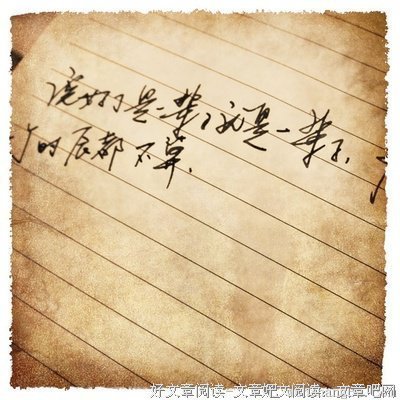 说好了是一辈子就是一辈子.
时辰都不算.
好文章阅读-文章吧
文章吧网